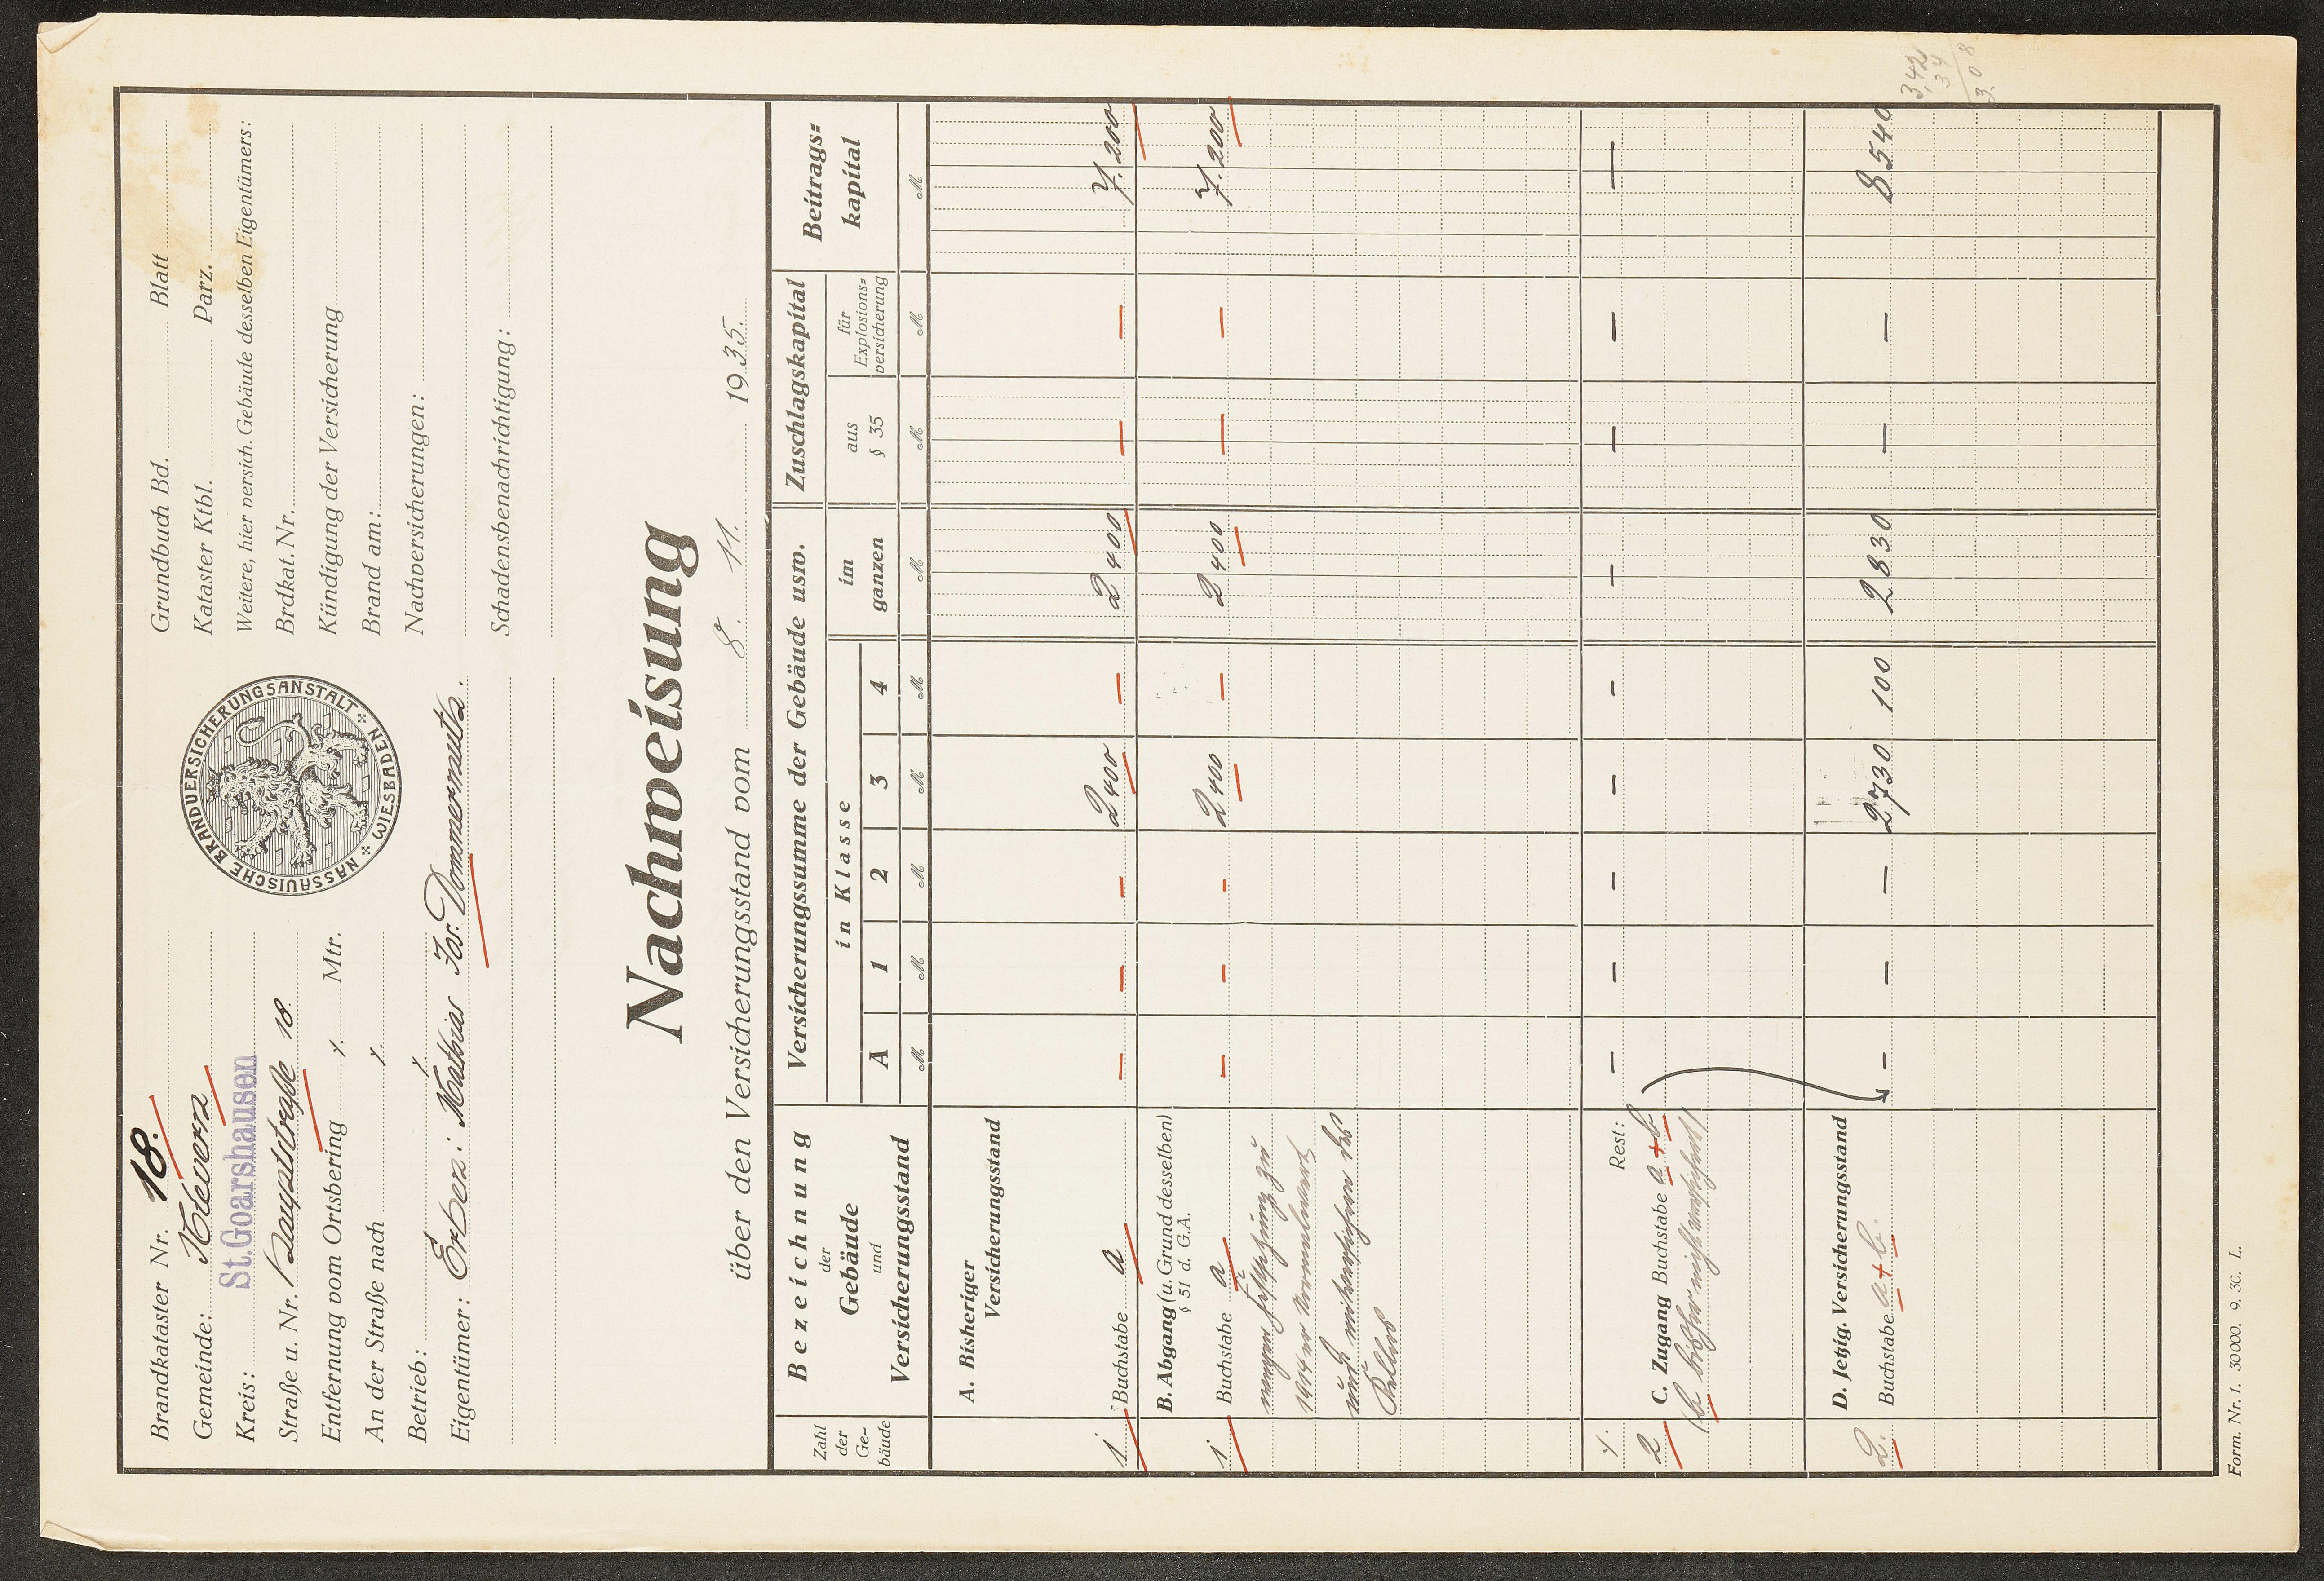 Brandkataster Nr. 18.
Gemeinde: Kevern
Kreis: St. Goarshausen
Straße u. Nr. Hauptstraße 18.
Entfernung vom Ortsbering ⁒ Mtr.
An der Straße nach ⁒
Betrieb: ⁒
Eigentümer: Erben: Mathias Jos. Dommermuth.
NASSAUISCHE BRANDVERSICHERUNGSANSTALT
WIESBADEN
Grundbuch Bd. Blatt
Kataster Ktbl. Parz.
Weitere, hier versich. Gebäude desselben Eigentümers:
Brdkat. Nr.
Kündigung der Versicherung
Brand am:
Nachversicherungen:
Schadensbenachrichtigung:
Nachweisung
über den Versicherungsstand vom 8. 11. 1935.
Zahl der Ge-bäude
Bezeichnung der Gebäude und Versicherungsstand
Versicherungssumme der Gebäude usw.
in Klasse
A 1 2 3 4
im ganzen
Zuschlagskapital
aus § 35
für Explosions=versicherung
Beitrags=kapital
M M M M M M M M M
A. Bisheriger
Versicherungsstand
1 Buchstabe a — — — 2400 — 2400 — — 7.200
B. Abgang (u. Grund desselben)
§ 51 d. G.A.
1 Buchstabe a — — — 2400 — 2400 — — 7.200
wegen Festsetzung zu
1914er Normalwert
und mitversichern des
Kellers
⁒ Rest: — — — — — — — — —
2 C. Zugang Buchstabe a + b
(b bisher nicht versichert)
D. Jetzig. Versicherungsstand
2. Buchstabe a + b. — — — 2730 100 2830 — — 8540
3,42
34
3.08
Form. Nr. 1. 30000. 9. 30. L.